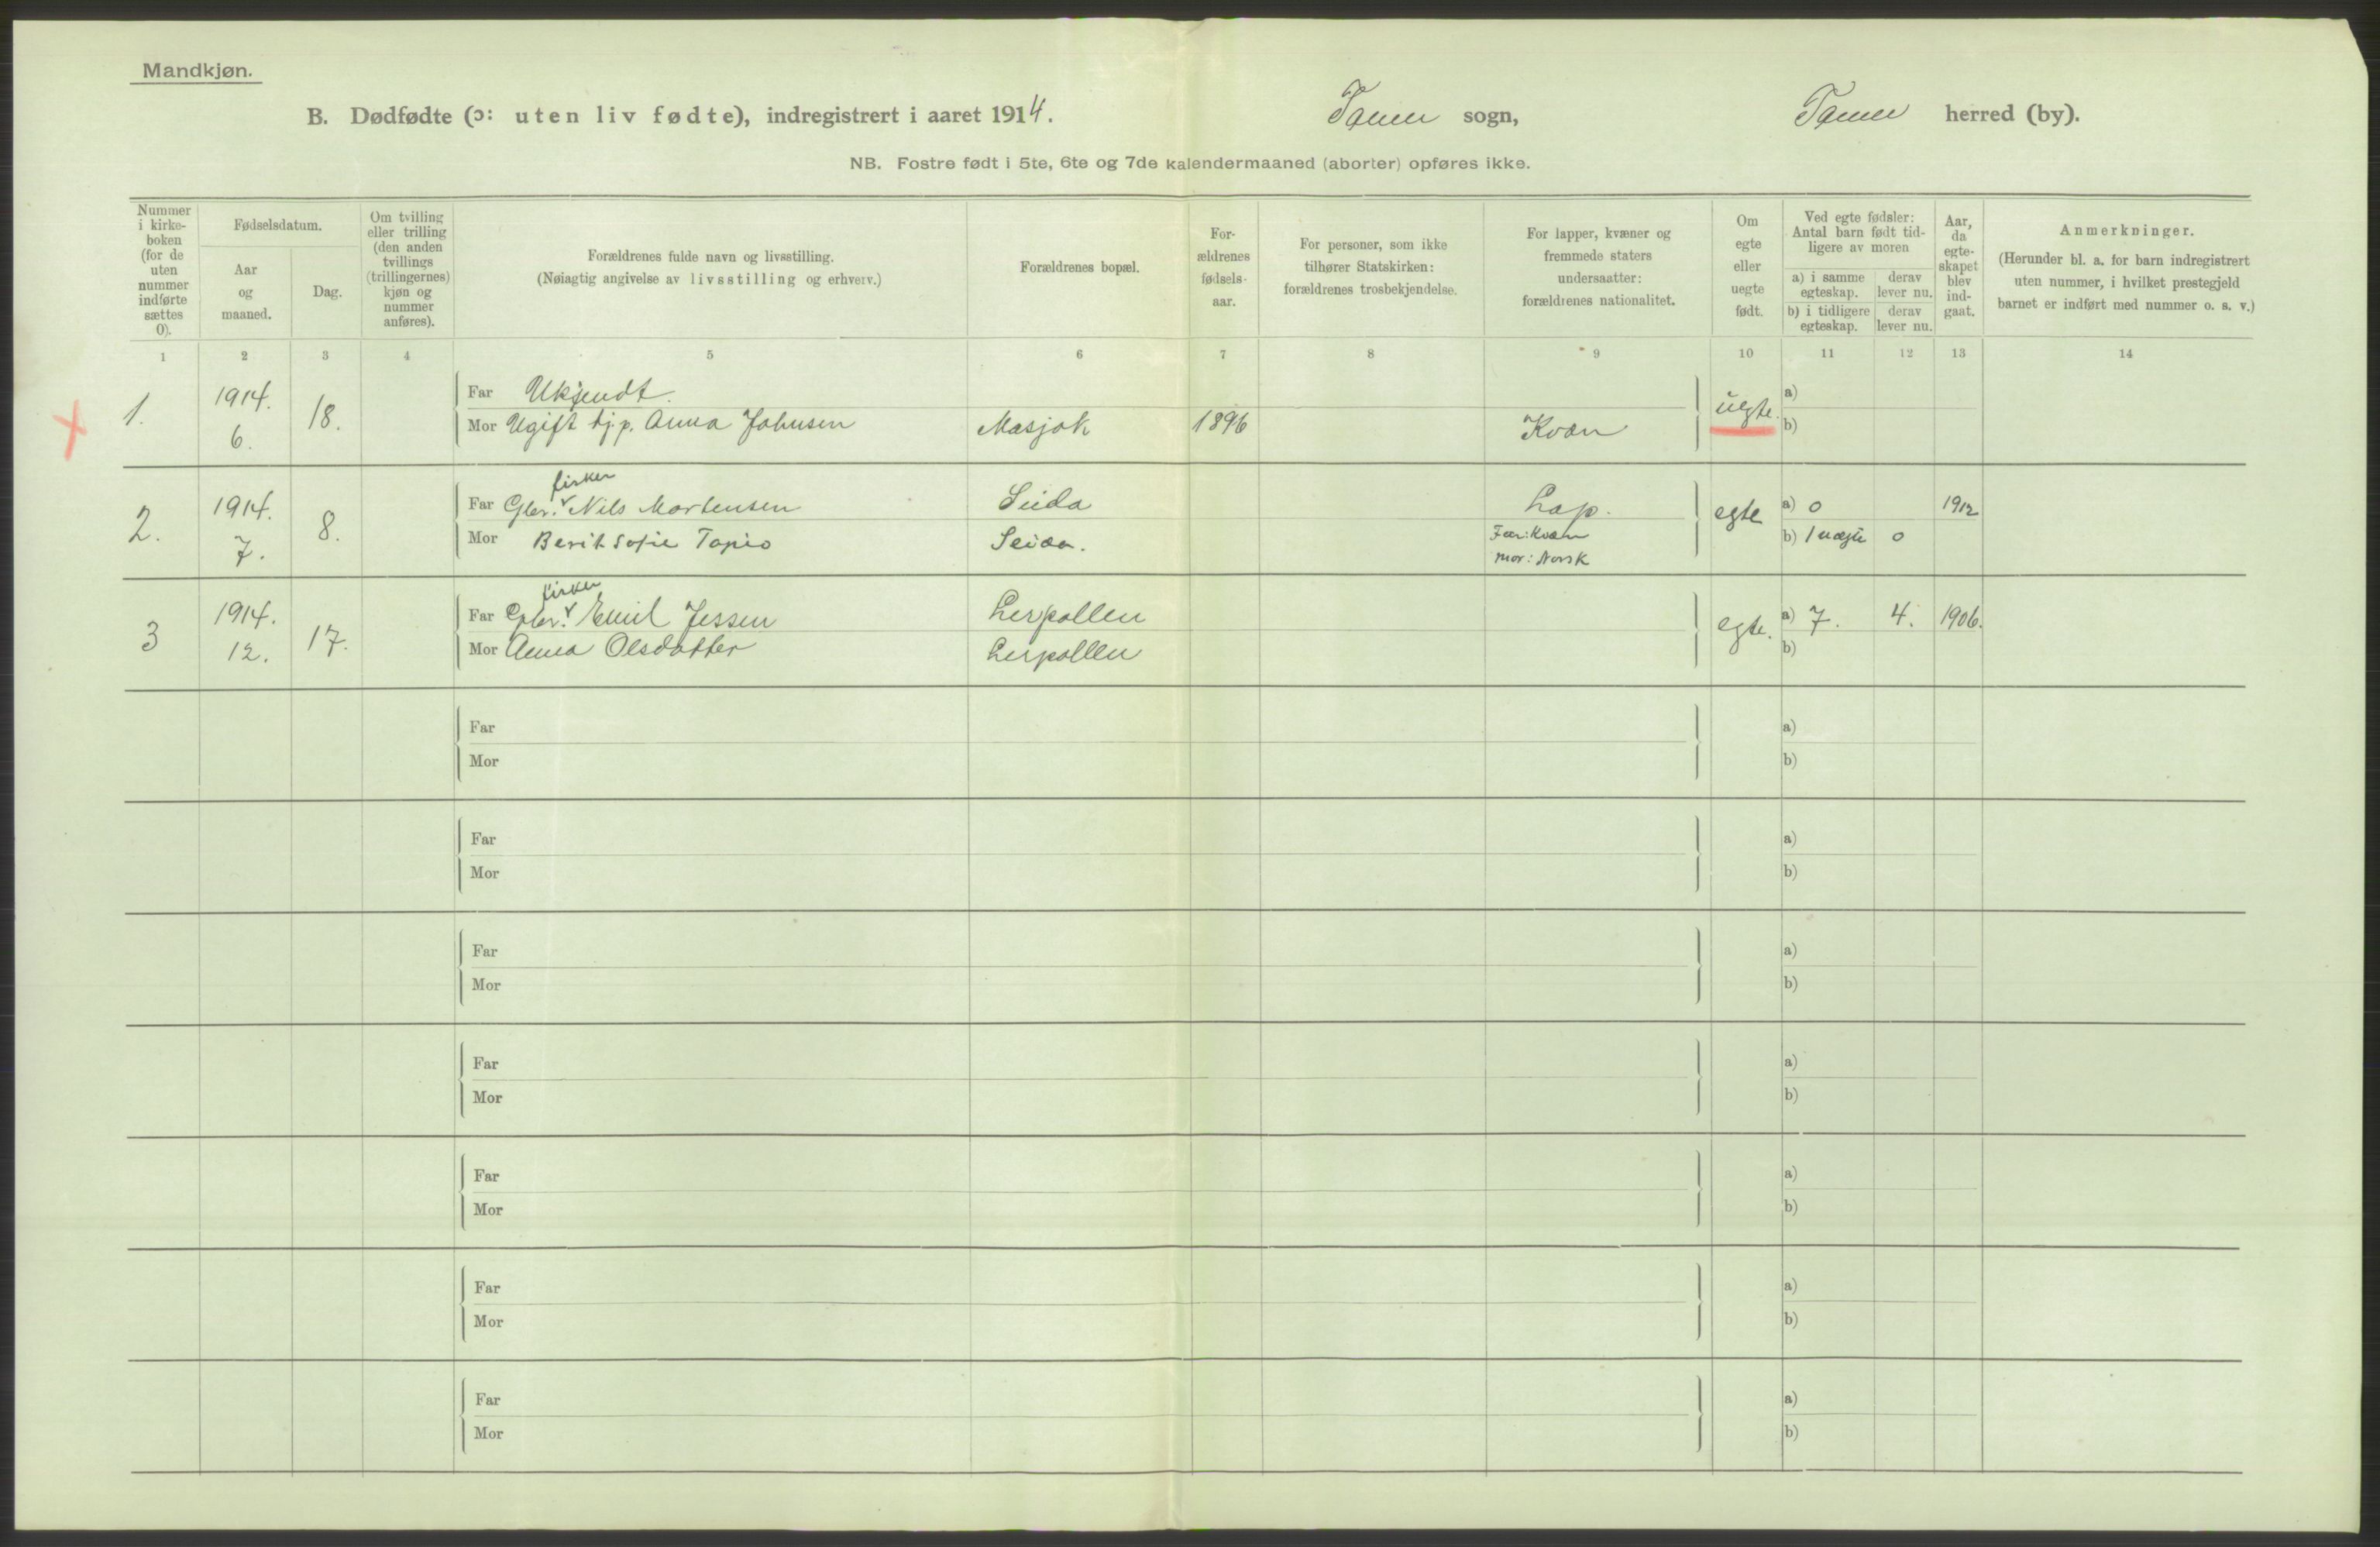 Mandkjøn.
B. Dødfødte (ɔ: uten liv fødte), indregistrert i aaret 1914. Tanen sogn, Tanen herred (by).
NB. Fostre født i 5te, 6te og 7de kalendermaaned (aborter) opføres ikke.
Nummer i kirke-boken (for de uten nummer indførte sættes 0).
Fødselsdatum.
Aar og maaned.
Dag.
Om tvilling eller trilling (den anden tvillings (trillingernes) kjøn og nummer anføres).
Forældrenes fulde navn og livsstilling.
(Nøiagtig angivelse av livsstilling og erhverv.)
Forældrenes bopæl.
For-ældrenes fødsels-aar.
For personer, som ikke tilhører Statskirken: forældrenes trosbekjendelse.
For lapper, kvæner og fremmede staters undersaatter: forældrenes nationalitet.
Om egte eller uegte født.
Ved egte fødsler: Antal barn født tid-ligere av moren
a) i samme egteskap.
derav lever nu.
b) i tidligere egteskap.
derav lever nu.
Aar, da egte-skapet blev ind-gaat.
Anmerkninger.
(Herunder bl. a. for barn indregistrert uten nummer, i hvilket prestegjeld barnet er indført med nummer o. s. v.)
1 2 3 4 5 6 7 8 9 10 11 12 13 14
1. 1914. 6. 18. Far Ukjendt. uegte. a)
Mor Ugift tj.p. Anna Johnsen Masjok 1896 Kvæn b)
fisker
2. 1914. 7. 8. Far Gbr. Nils Mortensen Seida Lap. egte a) 0 1912
Mor Berit Sofie Tapio Seida. Far: Kvæn b) 1 uægte 0
Mor: Norsk
fisker
3 1914. 12. 17. Far Gbr. Emil Jessen Lerpollen egte. a) 7. 4. 1906.
Mor Anna Olsdatter Lerpollen b)
Far a)
Mor b)
Far a)
Mor b)
Far a)
Mor b)
Far a)
Mor b)
Far a)
Mor b)
Far a)
Mor b)
Far a)
Mor b)